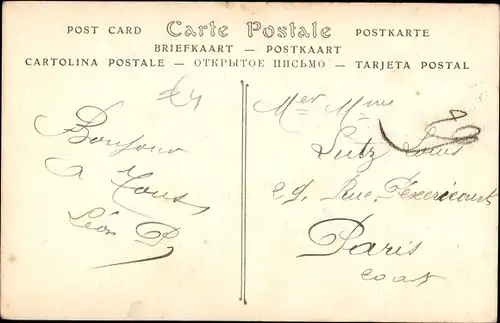 POST CARD Carte Postale POSTKARTE
BRIEFKAART — POSTKAART
CARTOLINA POSTALE — ОТКРЫТОЕ ПИСЬМО — TARJETA POSTAL
Bonjour
a Tous
Léon P.
Mer Mme
Lutz Louis
Rue Pexerécourt
Paris